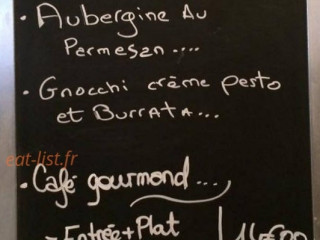 • Aubergine Au
Permesan ....
• Gnocchi crème pesto
et Burrata...
eat-list.fr
• Café gourmond...
- Entrée + Plat